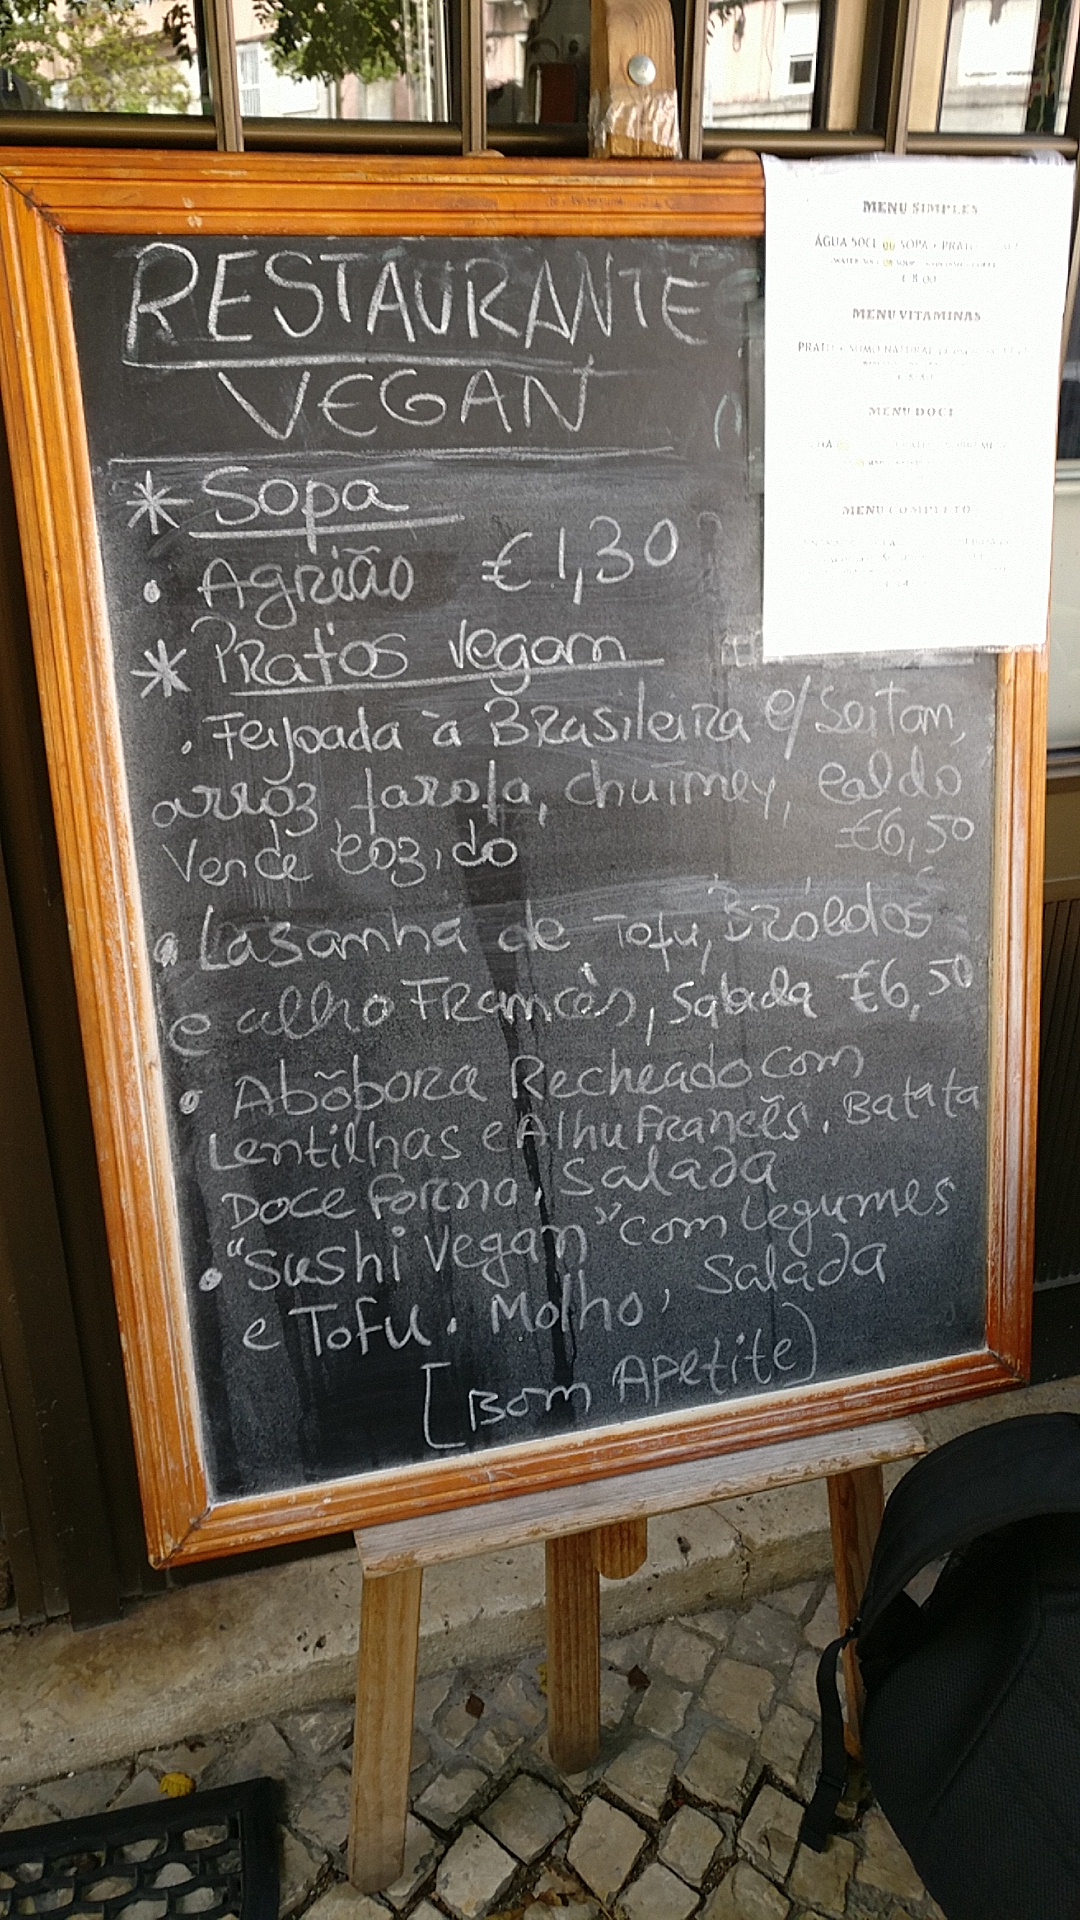 RESTAURANTE
VEGAN
* Sopa
• Agrião €1,30
* Pratos vegan
. Feijoada à Brasileira c/ Seitan,
arroz, farofa, chutney, caldo
Verde cozido €6,50
• Lasanha de Tofu, Brócolos
e alho Francês, Salada €6,50
• Abõbora Recheado com
Lentilhas e Alhu Francês, Batata
Doce forno, Salada
• "Sushi Vegan" com Legumes
e Tofu. Molho, Salada
[Bom Apetite)
MENU SIMPLES
ÁGUA 50CL ou SOPA + PRATO
€ 8.00
MENU VITAMINAS
PRATO + SUMO NATURAL
MENU DOCE
MENU COMPLETO